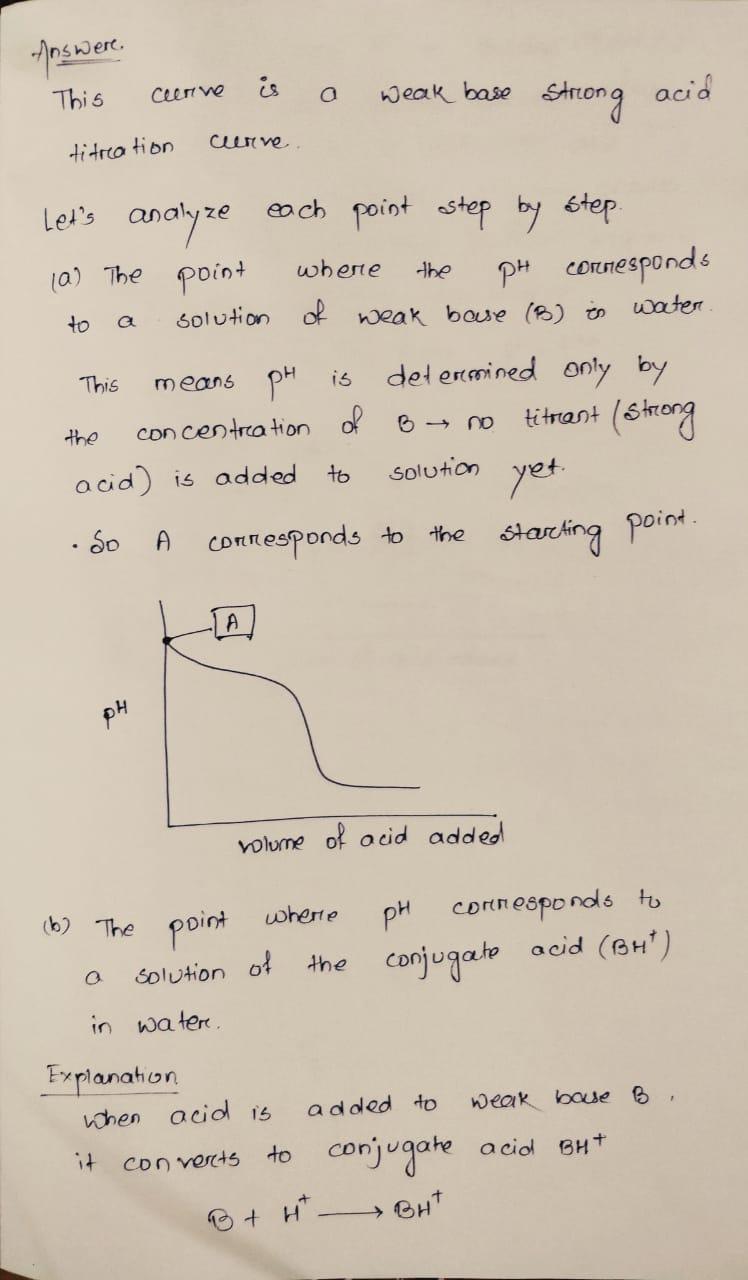 Answer.
This curve is a weak base strong acid
titration curve.
Let's analyze each point step by step.
(a) The point where the pH corresponds
to a solution of weak base (B) in water.
This means pH is determined only by
the concentration of B → no titrant (strong
acid) is added to solution yet.
• So A corresponds to the starting point.
A
pH
volume of acid added
(b) The point where pH corresponds to
a solution of the conjugate acid (BH⁺)
in water.
Explanation
when acid is added to weak base B,
it converts to conjugate acid BH⁺
B + H⁺ ⟶ BH⁺